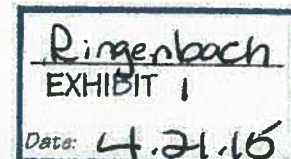 Ringenbach
EXHIBIT 1
Date: 4.21.16